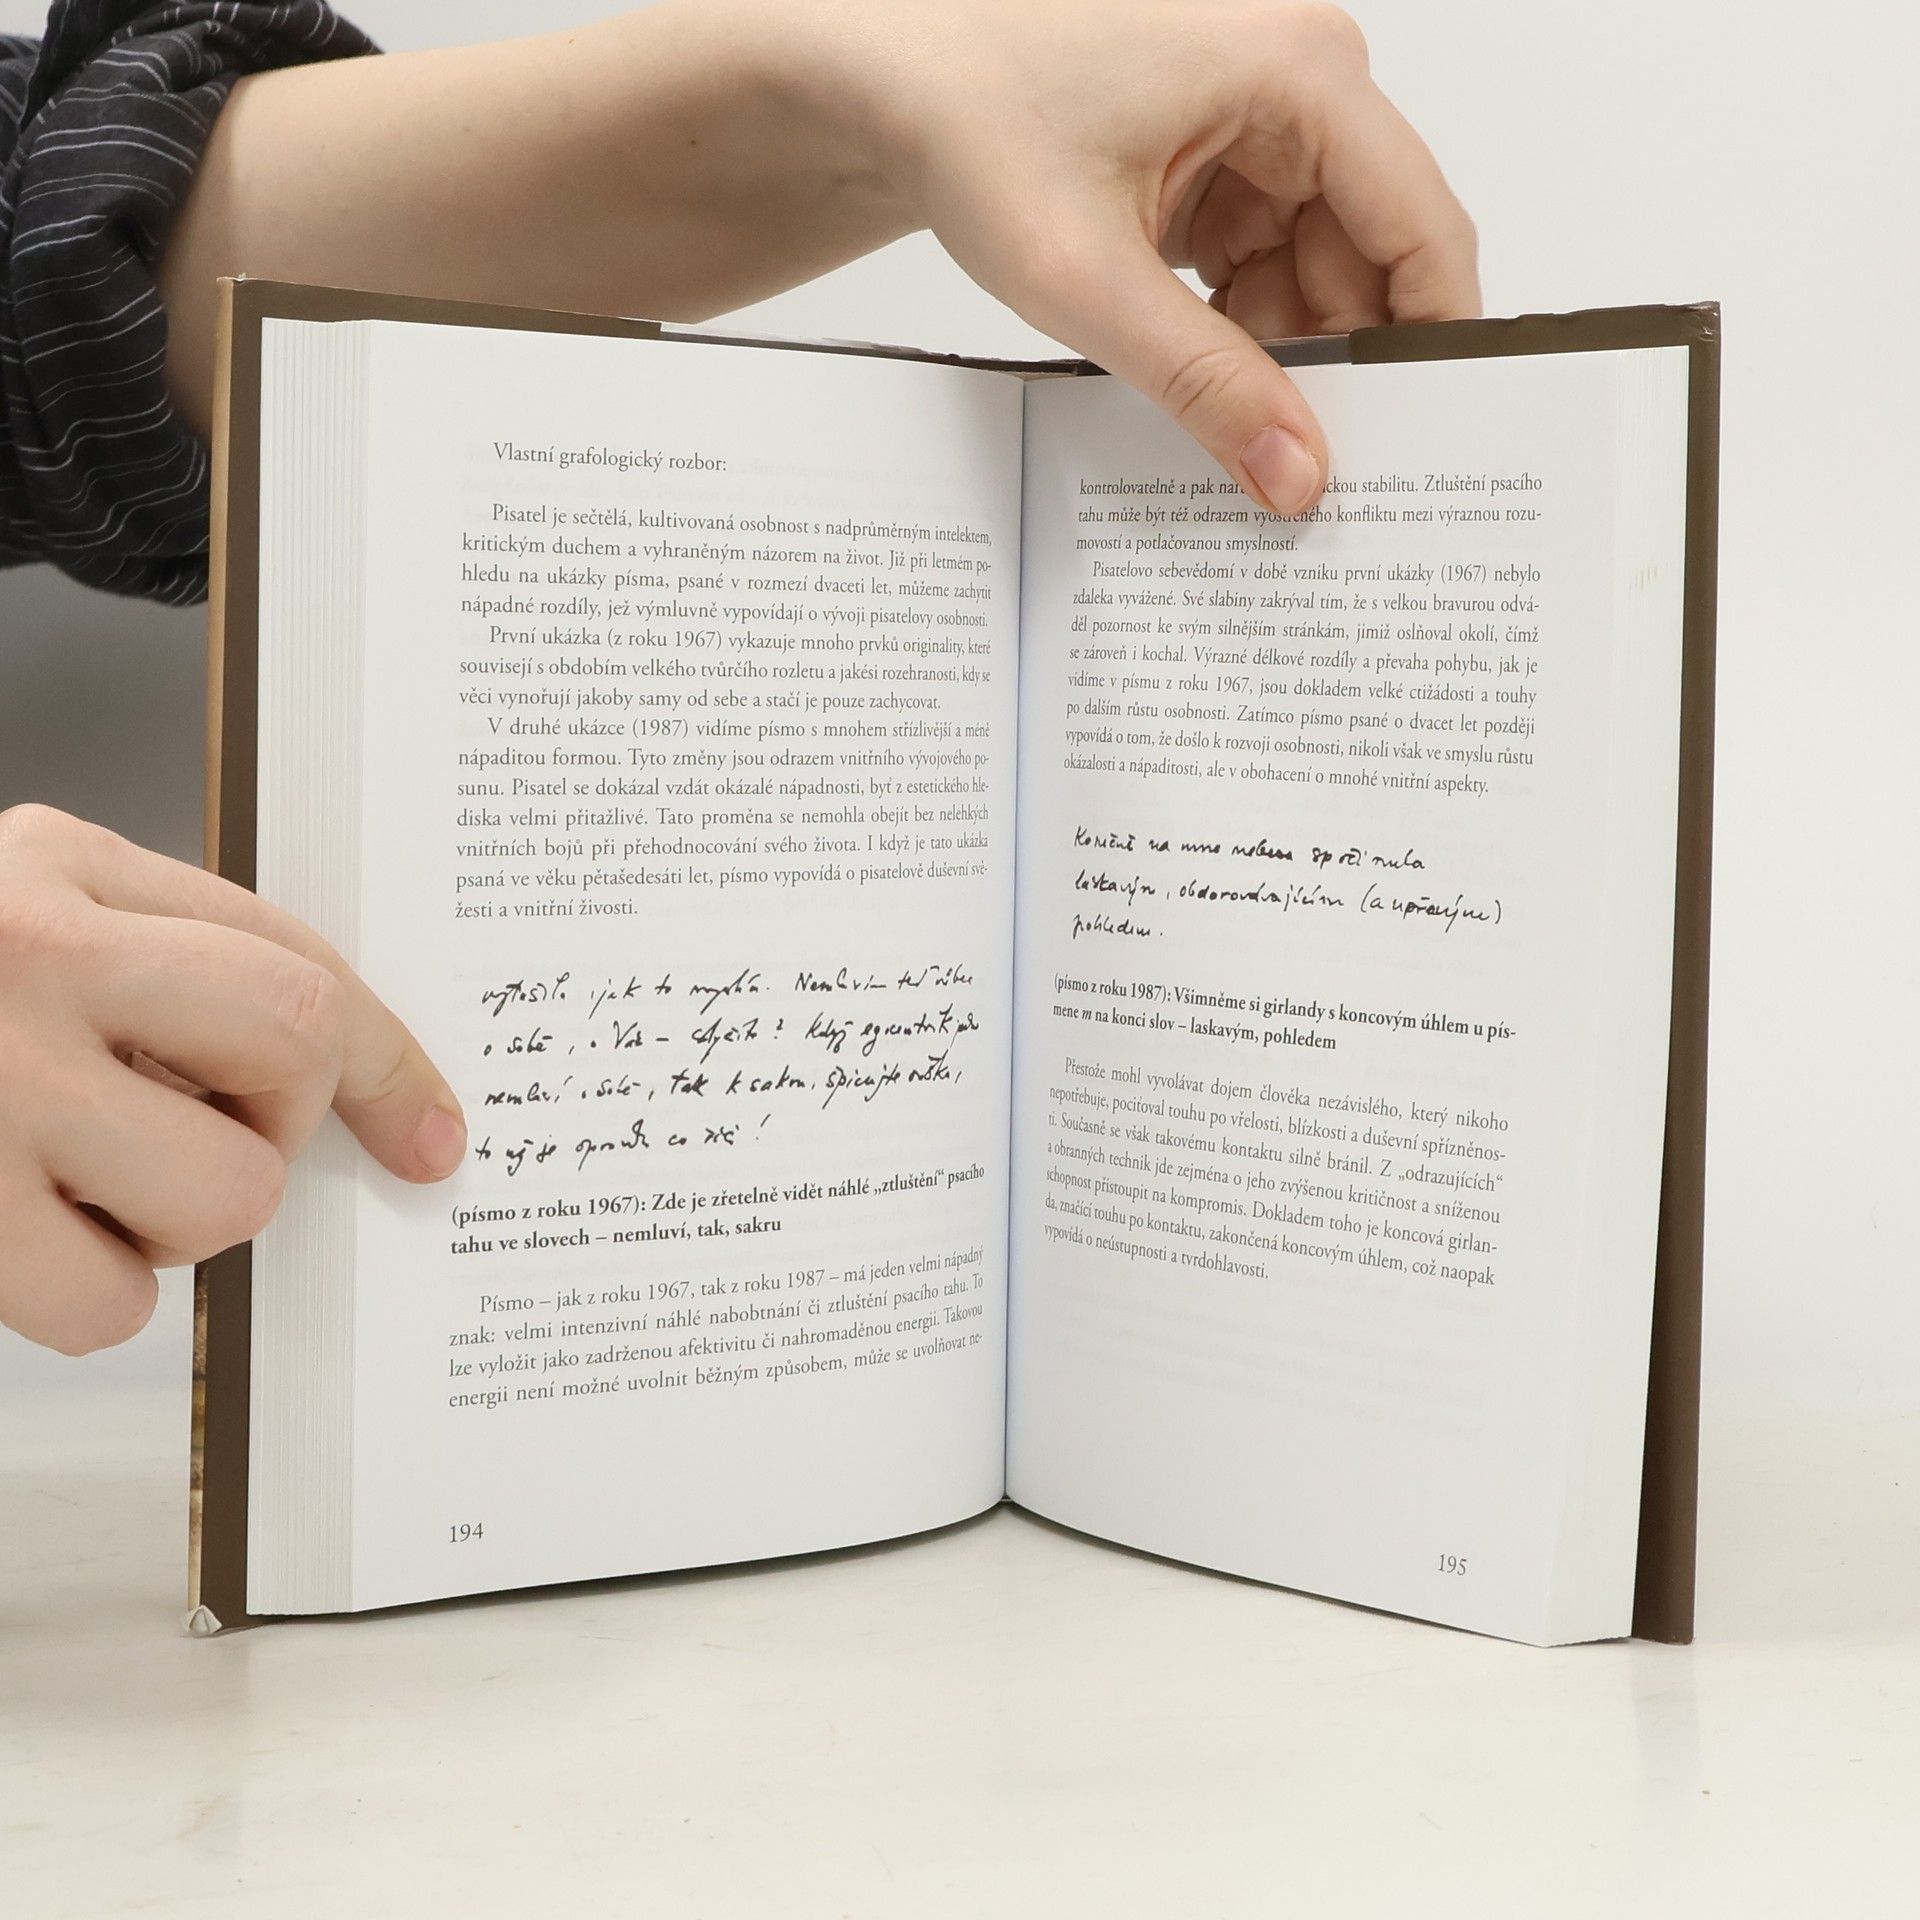 Vlastní grafologický rozbor:
Pisatel je sečtělá, kultivovaná osobnost s nadprůměrným intelektem,
kritickým duchem a vyhraněným názorem na život. Již při letmém po-
hledu na ukázky písma, psané v rozmezí dvaceti let, můžeme zachytit
nápadné rozdíly, jež výmluvně vypovídají o vývoji pisatelovy osobnosti.
První ukázka (z roku 1967) vykazuje mnoho prvků originality, které
souvisejí s obdobím velkého tvůrčího rozletu a jakési rozehranosti, kdy se
věci vynořují jakoby samy od sebe a stačí je pouze zachycovat.
V druhé ukázce (1987) vidíme písmo s mnohem střízlivější a méně
nápaditou formou. Tyto změny jsou odrazem vnitřního vývojového po-
sunu. Pisatel se dokázal vzdát okázalé nápadnosti, byť z estetického hle-
diska velmi přitažlivé. Tato proměna se nemohla obejít bez nelehkých
vnitřních bojů při přehodnocování svého života. I když je tato ukázka
psaná ve věku pětašedesáti let, písmo vypovídá o pisatelově duševní svě-
žesti a vnitřní živosti.
jak to myslím. Nemluvím teď vůbec
o sobě, o Vás – slyšíte? Když egocentrik
nemluví o sobě, tak k sakru, špicujte ouška,
to už je opravdu co říci!
(písmo z roku 1967): Zde je zřetelně vidět náhlé „ztluštění“ psacího
tahu ve slovech – nemluví, tak, sakru
Písmo – jak z roku 1967, tak z roku 1987 – má jeden velmi nápadný
znak: velmi intenzivní náhlé nabobtnání či ztluštění psacího tahu. To
lze vyložit jako zadrženou afektivitu či nahromaděnou energii. Takovou
energii není možné uvolnit běžným způsobem, může se uvolňovat ne-
194
kontrolovatelně a pak stabilitu. Ztluštění psacího
tahu může být též odrazem vyostřeného konfliktu mezi výraznou rozu-
movostí a potlačovanou smyslností.
Pisatelovo sebevědomí v době vzniku první ukázky (1967) nebylo
zdaleka vyvážené. Své slabiny zakrýval tím, že s velkou bravurou odvá-
děl pozornost ke svým silnějším stránkám, jimiž oslňoval okolí, čímž
se zároveň i kochal. Výrazné délkové rozdíly a převaha pohybu, jak je
vidíme v písmu z roku 1967, jsou dokladem velké ctižádosti a touhy
po dalším růstu osobnosti. Zatímco písmo psané o dvacet let později
vypovídá o tom, že došlo k rozvoji osobnosti, nikoli však ve smyslu růstu
okázalosti a nápaditosti, ale v obohacení o mnohé vnitřní aspekty.
Konečně na mne nebesa spočinula
laskavým, obdarovávajícím (a upřeným)
pohledem.
(písmo z roku 1987): Všimněme si girlandy s koncovým úhlem u pís-
mene m na konci slov – laskavým, pohledem
Přestože mohl vyvolávat dojem člověka nezávislého, který nikoho
nepotřebuje, pociťoval touhu po vřelosti, blízkosti a duševní spřízněnos-
ti. Současně se však takovému kontaktu silně bránil. Z „odrazujících“
a obranných technik jde zejména o jeho zvýšenou kritičnost a sníženou
schopnost přistoupit na kompromis. Dokladem toho je koncová girlan-
da, značící touhu po kontaktu, zakončená koncovým úhlem, což naopak
vypovídá o neústupnosti a tvrdohlavosti.
195